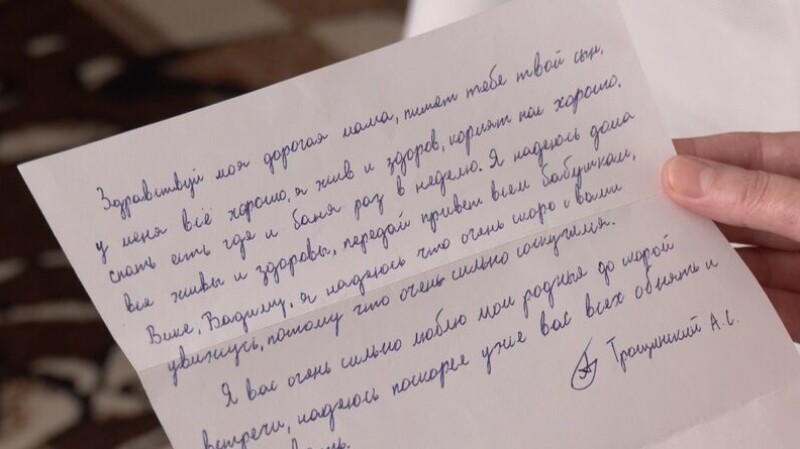 Здравствуй моя дорогая мама, пишет тебе твой сын.
у меня всё хорошо, я жив и здоров, кормят нас хорошо.
спать есть где и баня раз в неделю. Я надеюсь дома
все живы и здоровы, передай привет всем бабушкам,
Вике, Вадиму. Я надеюсь что очень скоро с вами
увижусь, потому что очень сильно соскучился.
Я вас очень сильно люблю мои родныя до скорой
встречи, надеюсь поскорее уже вас всех обнять и
Трощинский А.С.